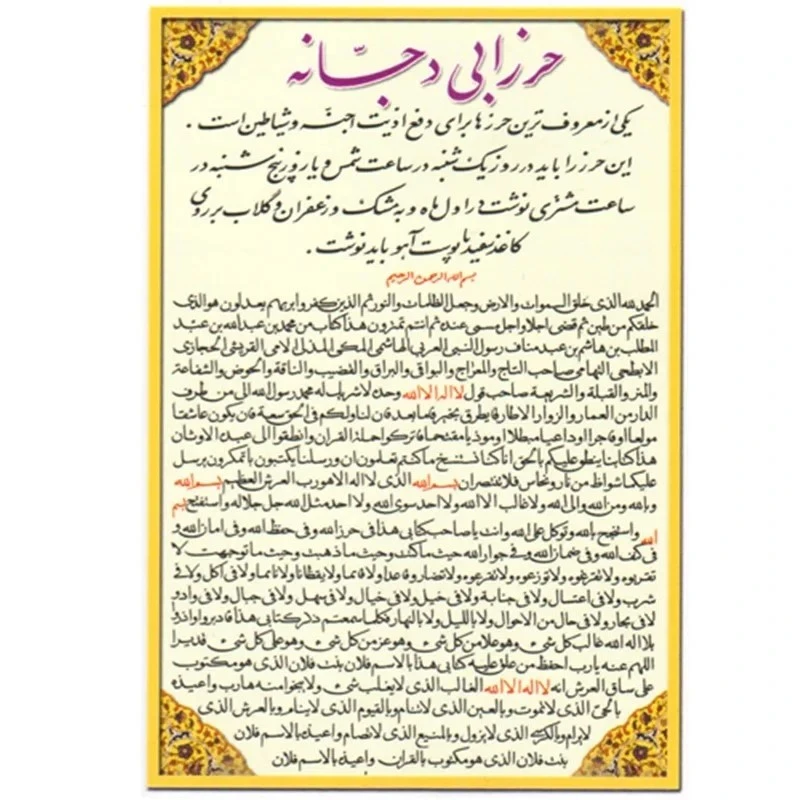 حرز ابی دجّانه
یکی از معروف ترین حرزها برای دفع اذیت اجنّه و شیاطین است .
این حرز را باید در روز یک شنبه در ساعت شمس و یا روز پنج شنبه در
ساعت مشتری نوشت در اول ماه و به مشک و زعفران و گلاب بر روی
کاغذ سفید یا پوست آهو باید نوشت .
بسم الله الرحمن الرحیم
الحمد لله الذی خلق السموات والارض وجعل الظلمات والنور ثم الذین کفروا بربهم یعدلون هو الذی
خلقکم من طین ثم قضی اجلا واجل مسمی عنده ثم انتم تمترون هذا کتاب من محمد بن عبدالله بن عبد
المطلب بن هاشم بن عبد مناف رسول النبی العربی الهاشمی المکی المدنی الامی القریشی الحجازی
الابطحی التهامی صاحب التاج والمعراج والبراق والقضیب والناقة والحوض والشفاعة
والمنبر والقبلة والشریعة صاحب قول لا اله الا الله وحده لاشریک له محمد رسول الله الی من طرف
الدار من العمار والزوار الا طارقا یطرق بخیر فاما بعد فان لنا ولکم فی الحق سعة فان یکون عاشقا
مولعا او فاجرا او داعیا مبطلا او موذیا مقتحما فاترکوا حملة القران وانطلقوا الی عبدة الاوثان
هذا کتابنا ینطق علیکم بالحق انا کنا نستنسخ ما کنتم تعملون ان رسلنا یکتبون ما تمکرون یرسل
علیکما شواظ من نار ونحاس فلا تنتصران بسم الله الذی لا اله الا هو رب العرش العظیم بسم الله
وبالله ومن الله والی الله ولا غالب الا الله ولا احد سوی الله ولا احد مثل الله جل جلاله واستفتح بسم
الله واستنجح بالله وتوکل علی الله وانت یا صاحب کتابی هذا فی حرز الله وفی حفظ الله وفی امان الله و
فی کنف الله وفی ضمان الله وفی جوار الله حیث ما کنت وحیث ما ذهبت وحیث ما توجهت لا
تقربوه ولا تفزعوه ولا تضاروه قاعدا ولا قائما ولا یقظانا ولا نائما ولا فی اکل ولا فی
شرب ولا فی اغتسال ولا فی جنابة ولا فی خیل ولا فی خیال ولا فی سهل ولا فی جبال ولا فی وادو
لا فی بحار ولا فی حال من الاحوال ولا باللیل ولا بالنهار فکلما سمعتم ذکر کتابی هذا فادبروا
بلا اله الا الله غالب کل شئ وهو علا من کل شئ وهو عز من کل شئ وهو علی کل شئ قدیرا
اللهم عنه یا رب احفظ من علق علیه کتابی هذا بالاسم فلان بنت فلان الذی هو مکتوب
علی ساق العرش انه لا اله الا الله الغالب الذی لا یغلب شئ ولا ینجو منه هارب واعیذه
بالحی الذی لا تموت وبالعین الذی لا تنام وبالقیوم الذی لا ینام وبالعرش الذی
لا یرام وبالکرسی الذی لا یزول وبالمنیع الذی لا انصام واعیذه بالاسم فلان
بنت فلان الذی هو مکتوب بالقران واعیذه بالاسم فلان